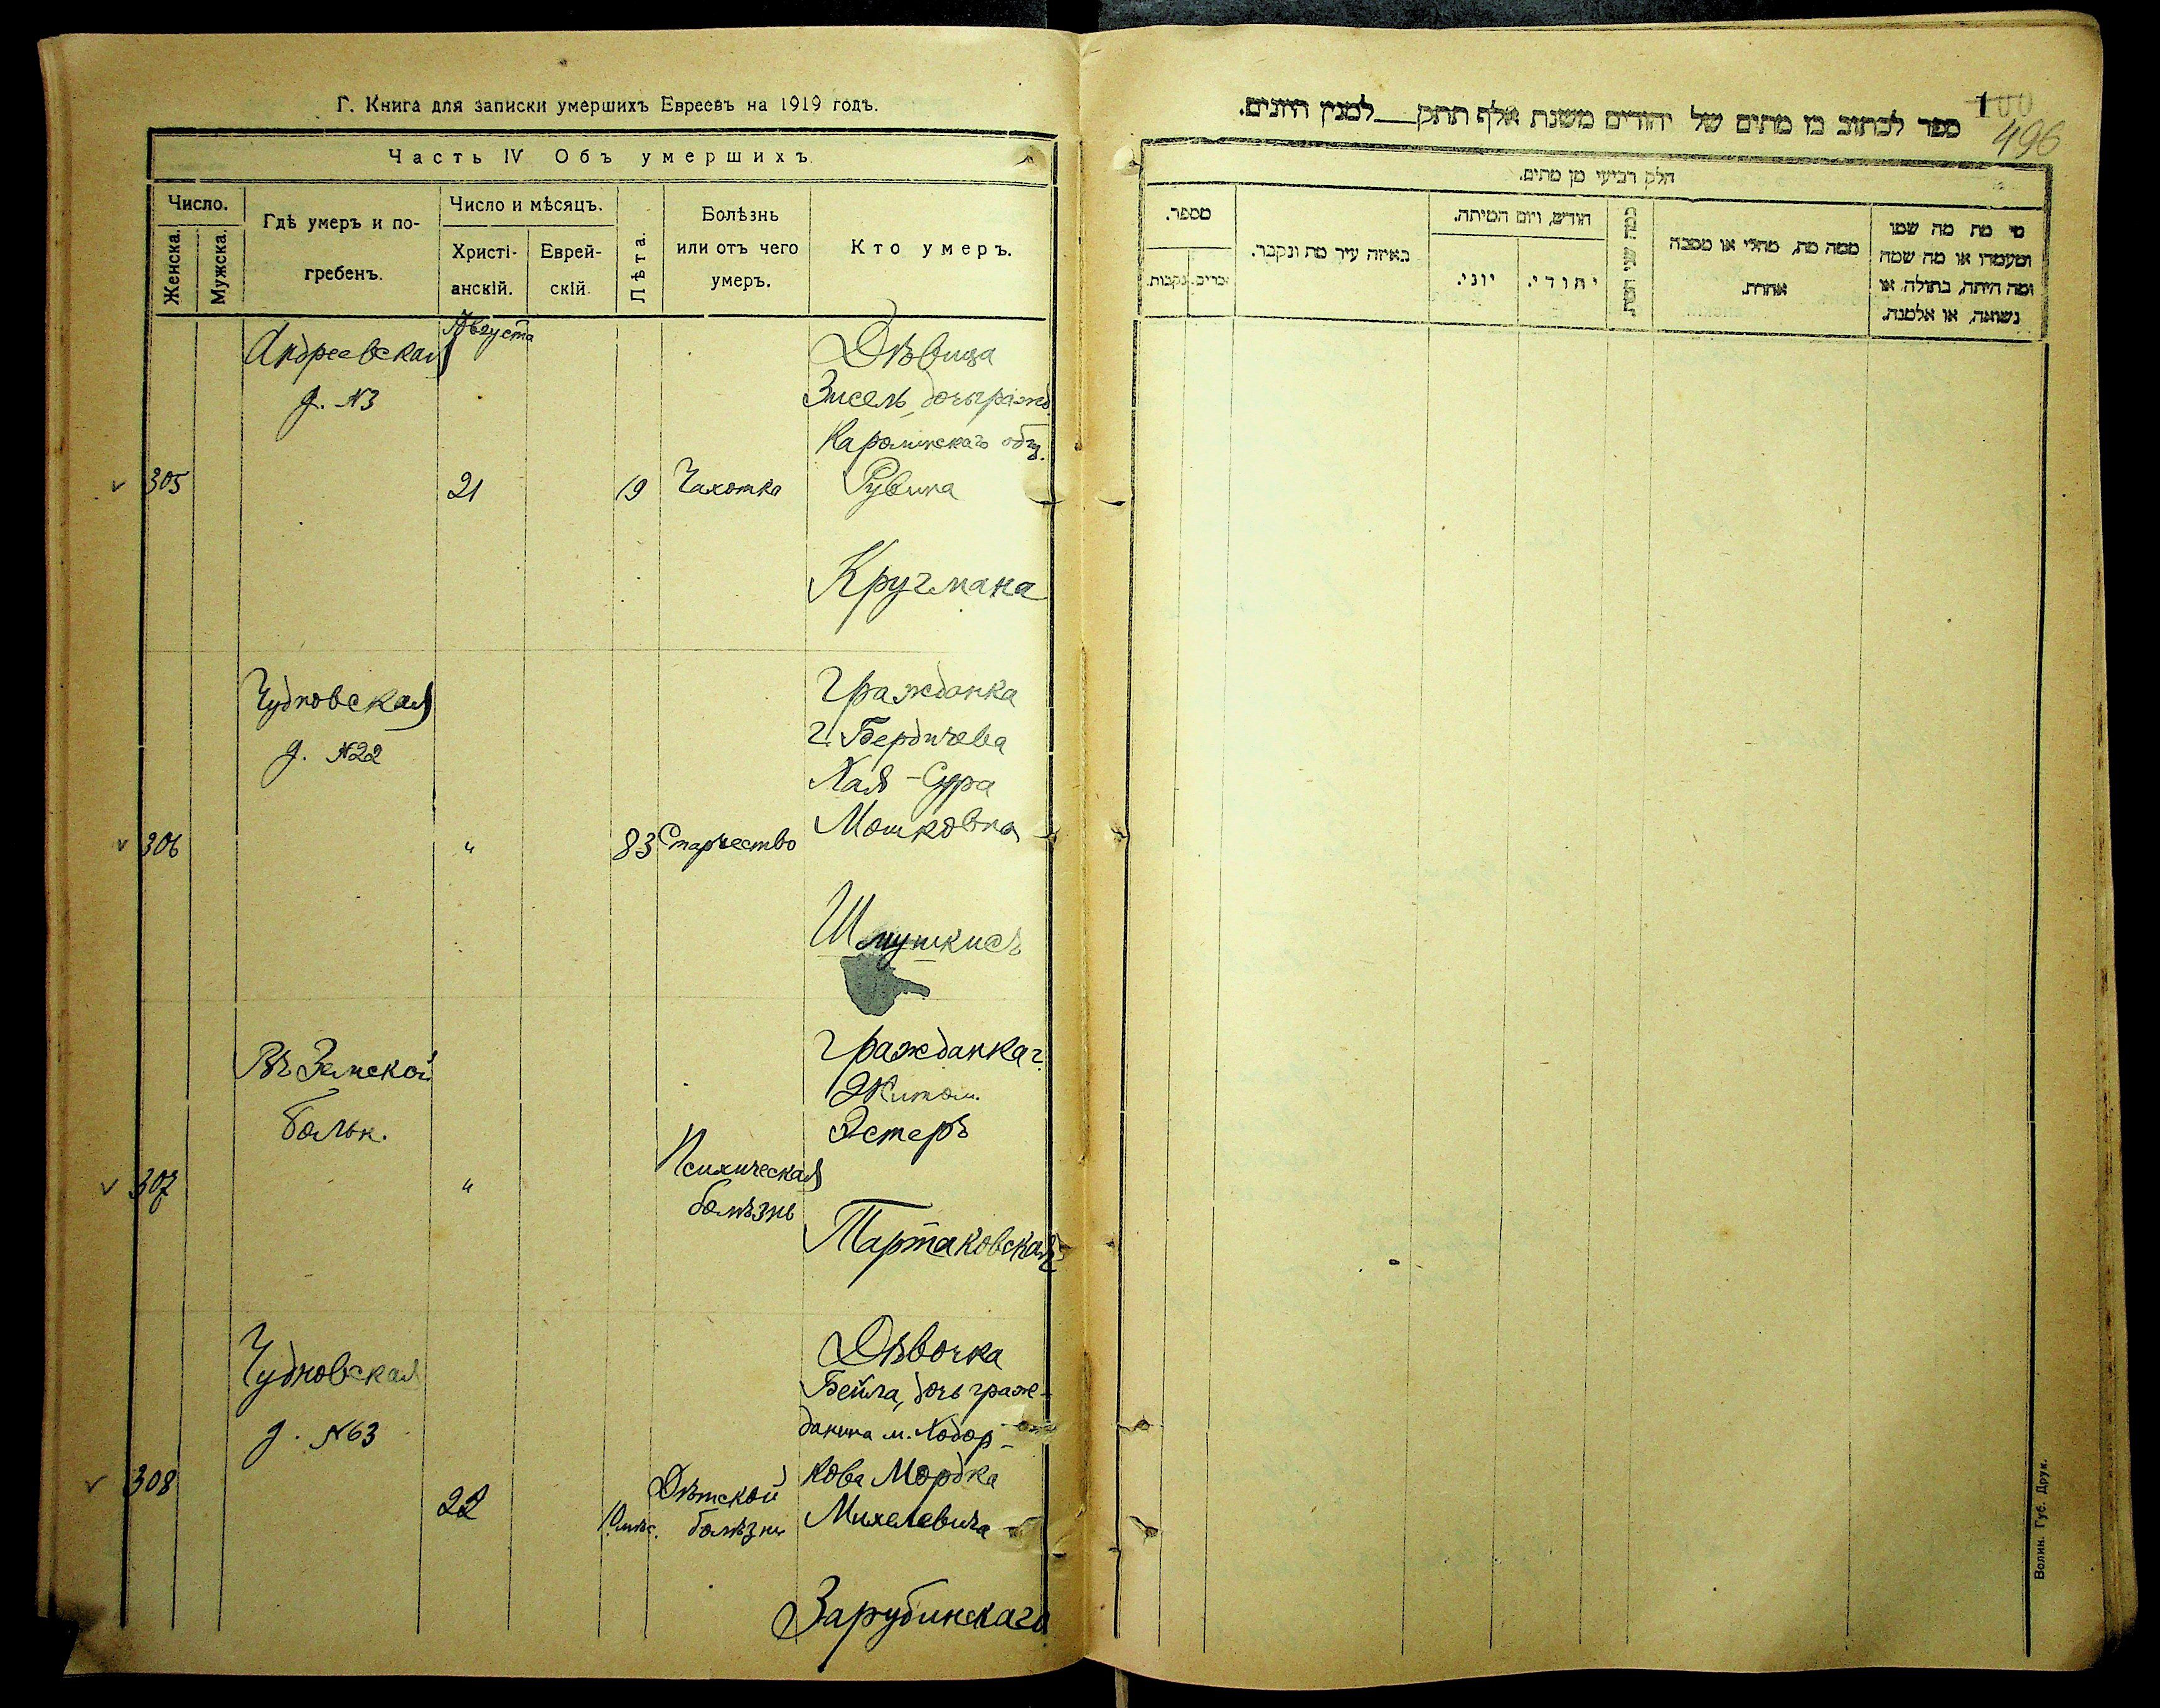 Г. Книга для записки умершихъ Евреевъ на 1919 годъ.
Часть IV Объ умершихъ.
Число.
Женска.
Мужска.
Гдѣ умеръ и по-
гребенъ.
Число и мѣсяцъ.
Христі-
анскій.
Еврей-
скій.
Лѣта.
Болѣзнь
или отъ чего
умеръ.
Кто умеръ.
Августа
Андреевская
д. №3
305
21
19
Чахотка
Дѣвица
Зисель, дочь гражд.
общ.
Рувина
Кругмана
Чудновская
д. №22
306
"
83
Старчество
Гражданка
г. Бердичева
Хая-Сура
Мошковна
Шмушкисъ
Въ Земской
больн.
307
"
Психическая
болѣзнь
Гражданка г.
Житом.
Эстеръ
Тартаковская
Чудновская
д. №63
308
22
10 мѣс.
Дѣтской
болѣзни
Дѣвочка
Бейла, дочь граж-
данина м. Ходор-
кова Мордка
Михелевича
Зарубинскаго
100
496
ספר לכתוב בו מתים של יהודים משנת אלף תתק___למנין היונים.
חלק רביעי מן מתים.
מספר.
זכרים.
נקבות.
באיזה עיר מת ונקבר.
חודש, ויום המיתה.
יוני.
יהודי.
כמה שני המת.
ממה מת, מחלי או מסבה
אחרת.
מי מת מה שמו
ומעמדו או מה שמה
ומה היתה, בתולה, או
נשואה, או אלמנה.
Волин. Губ. Друк.